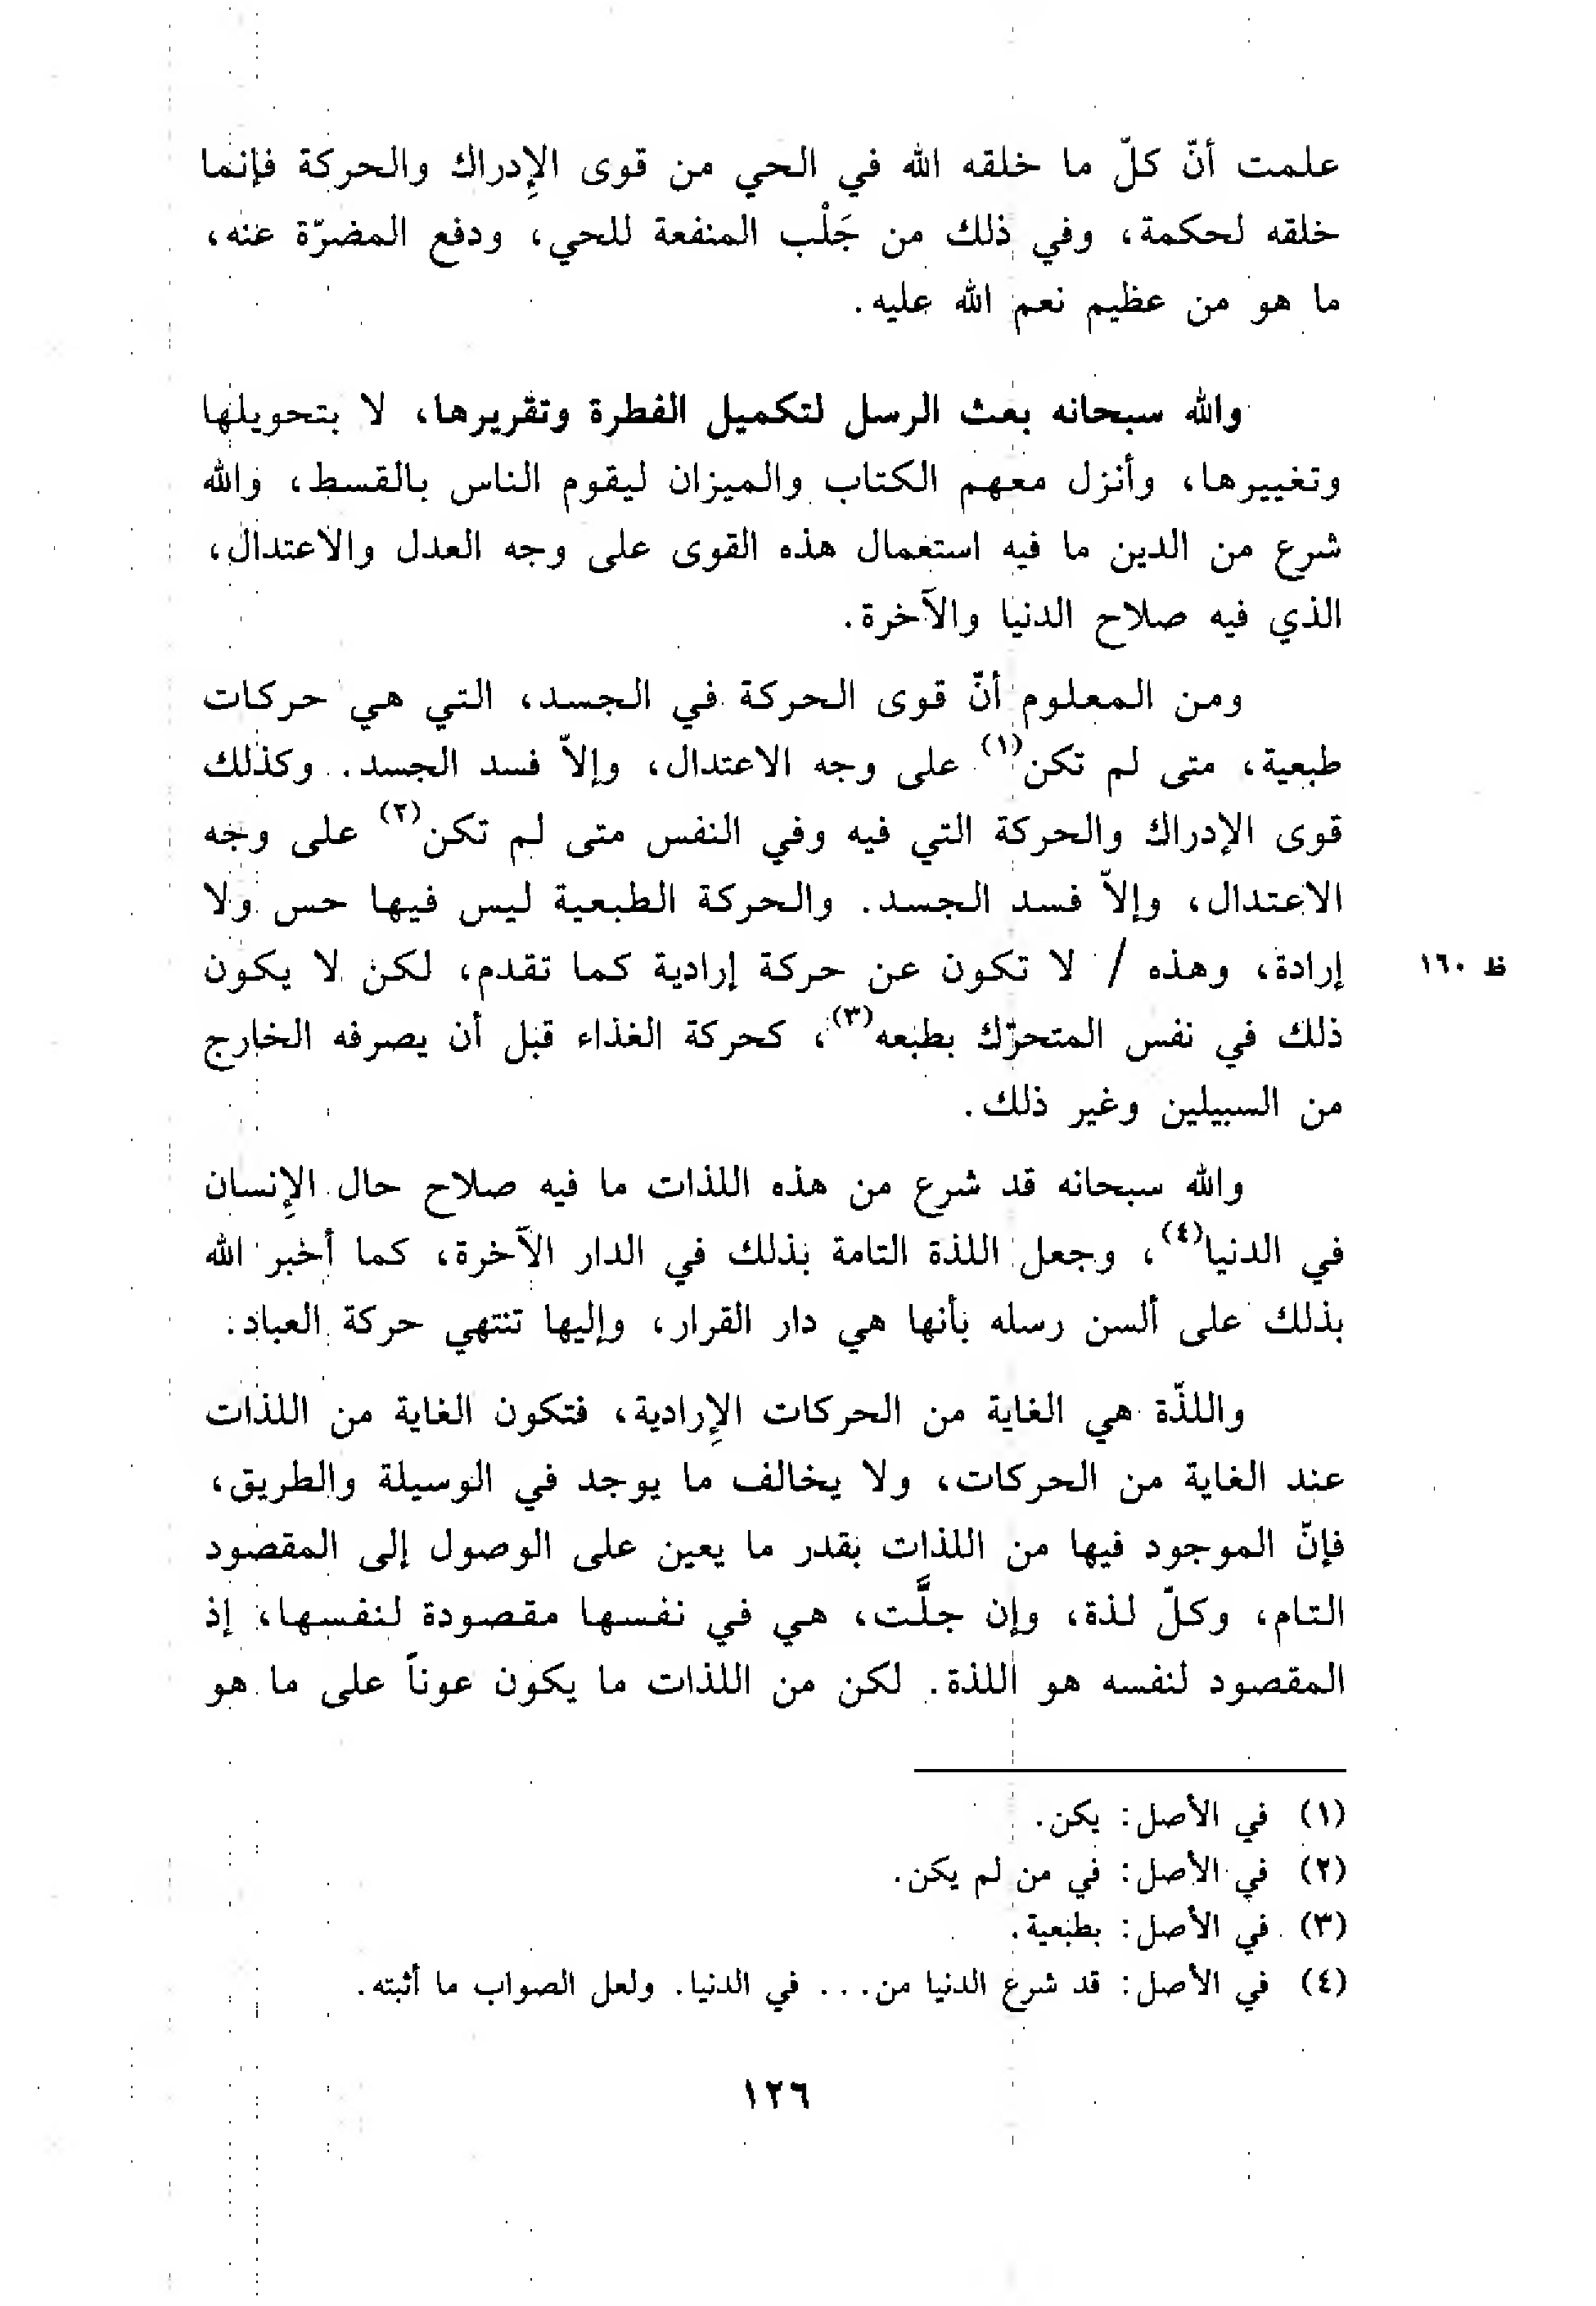 علمت أنّ كلّ ما خلقه الله في الحي من قوى الإِدراك والحركة فإنما
خلقه لحكمة، وفي ذلك من جَلْب المنفعة للحي، ودفع المضرّة عنه،
ما هو من عظيم نعم الله عليه.
والله سبحانه بعث الرسل لتكميل الفطرة وتقريرها، لا بتحويلها
وتغييرها، وأنزل معهم الكتاب والميزان ليقوم الناس بالقسط، والله
شرع من الدين ما فيه استعمال هذه القوى على وجه العدل والاعتدال،
الذي فيه صلاح الدنيا والآخرة.
ومن المعلوم أنّ قوى الحركة في الجسد، التي هي حركات
طبعية، متى لم تكن(١) على وجه الاعتدال، وإلاّ فسد الجسد. وكذلك
قوى الإدراك والحركة التي فيه وفي النفس متى لم تكن(٢) على وجه
الاعتدال، وإلاّ فسد الجسد. والحركة الطبعية ليس فيها حس ولا
إرادة، وهذه / لا تكون عن حركة إرادية كما تقدم، لكن لا يكون
ظ ١٦٠
ذلك في نفس المتحرّك بطبعه(٣)، كحركة الغذاء قبل أن يصرفه الخارج
من السبيلين وغير ذلك.
والله سبحانه قد شرع من هذه اللذات ما فيه صلاح حال الإِنسان
في الدنيا(٤)، وجعل اللذة التامة بذلك في الدار الآخرة، كما أخبر الله
بذلك على ألسن رسله بأنها هي دار القرار، وإليها تنتهي حركة العباد.
واللذّة هي الغاية من الحركات الإِرادية، فتكون الغاية من اللذات
عند الغاية من الحركات، ولا يخالف ما يوجد في الوسيلة والطريق،
فإنّ الموجود فيها من اللذات بقدر ما يعين على الوصول إلى المقصود
التام، وكلّ لذة، وإن جلَّت، هي في نفسها مقصودة لنفسها، إذ
المقصود لنفسه هو اللذة. لكن من اللذات ما يكون عوناً على ما هو
(١) في الأصل: يكن.
(٢) في الأصل: في من لم يكن.
(٣) في الأصل: بطبعية.
(٤) في الأصل: قد شرع الدنيا من... في الدنيا. ولعل الصواب ما أثبته.
١٢٦